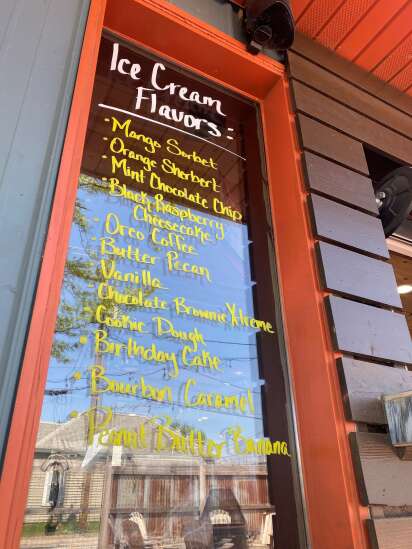 Ice Cream
Flavors:
• Mango Sorbet
• Orange Sherbert
• Mint Chocolate Chip
• Black Raspberry
Cheesecake
• Oreo Coffee
• Butter Pecan
• Vanilla
• Chocolate Brownie Xtreme
• Cookie Dough
• Birthday Cake
• Bourbon Caramel
Peanut Butter Banana